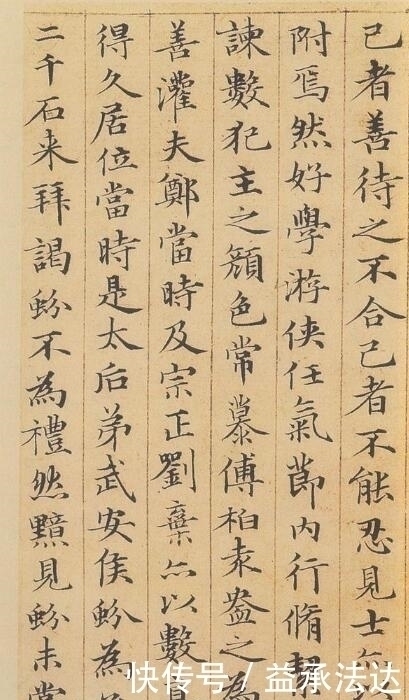 己者善待之不合己者不能忍見士
附焉然好學游俠任氣節内行脩
諫數犯主之顏色常慕傅柏袁盎之為
善灌夫鄭當時及宗正劉棄亦以數
得久居位當時是太后弟武安侯蚡為
二千石来拜謁蚡不為禮然黯見蚡未
快传号 / 益承法达